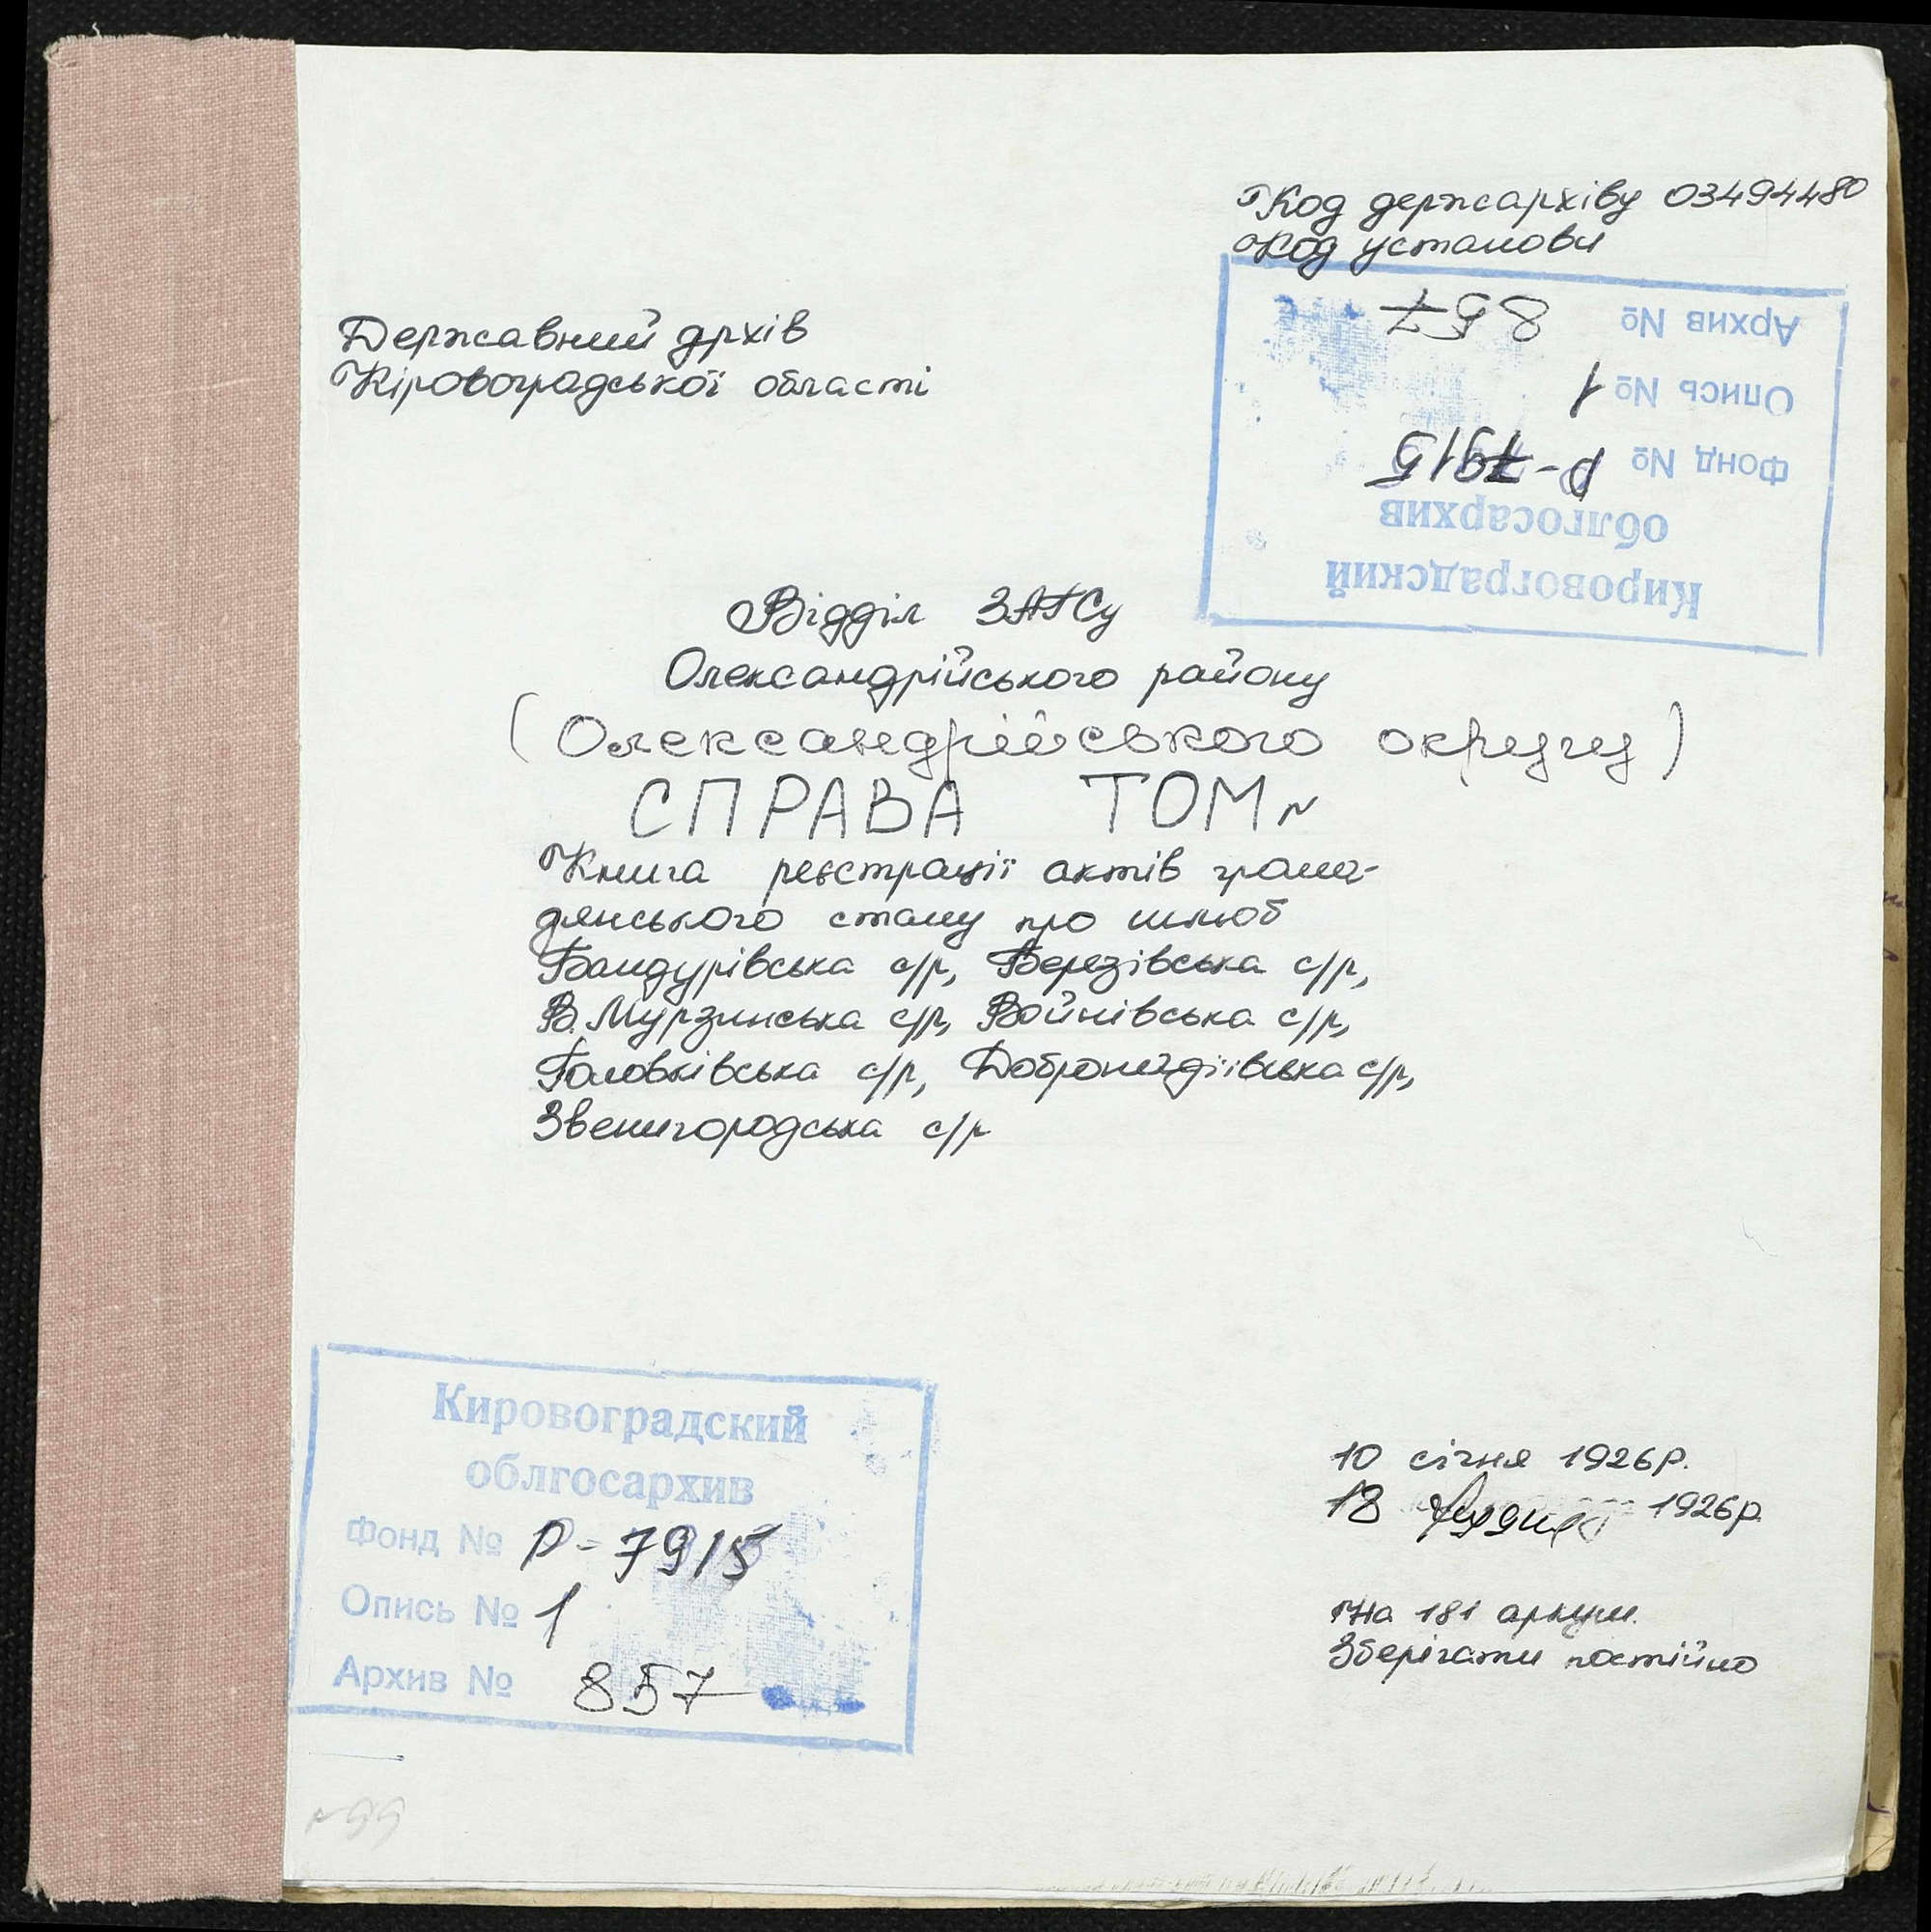 Код держархіву 03494480
Код установи
Архив № 857
Опись № 1
Фонд № Р-7915
облгосархив
Кировоградский
Державний архів
Кіровоградської області
Відділ ЗАГСу
Олександрійського району
(Олександрійського округу)
СПРАВА ТОМ №
Книга реєстрації актів грома-
дянського стану про шлюб
Бандурівська с/р, Березівська с/р,
В.Мурзинська с/р, Войнівська с/р,
Головківська с/р, Добронадіївська с/р,
Звенигородська с/р
Кировоградский
облгосархив
Фонд № Р-7915
Опись № 1
Архив № 857
10 січня 1926р.
18 грудня 1926р.
На 181 аркуш.
Зберігати постійно
№99